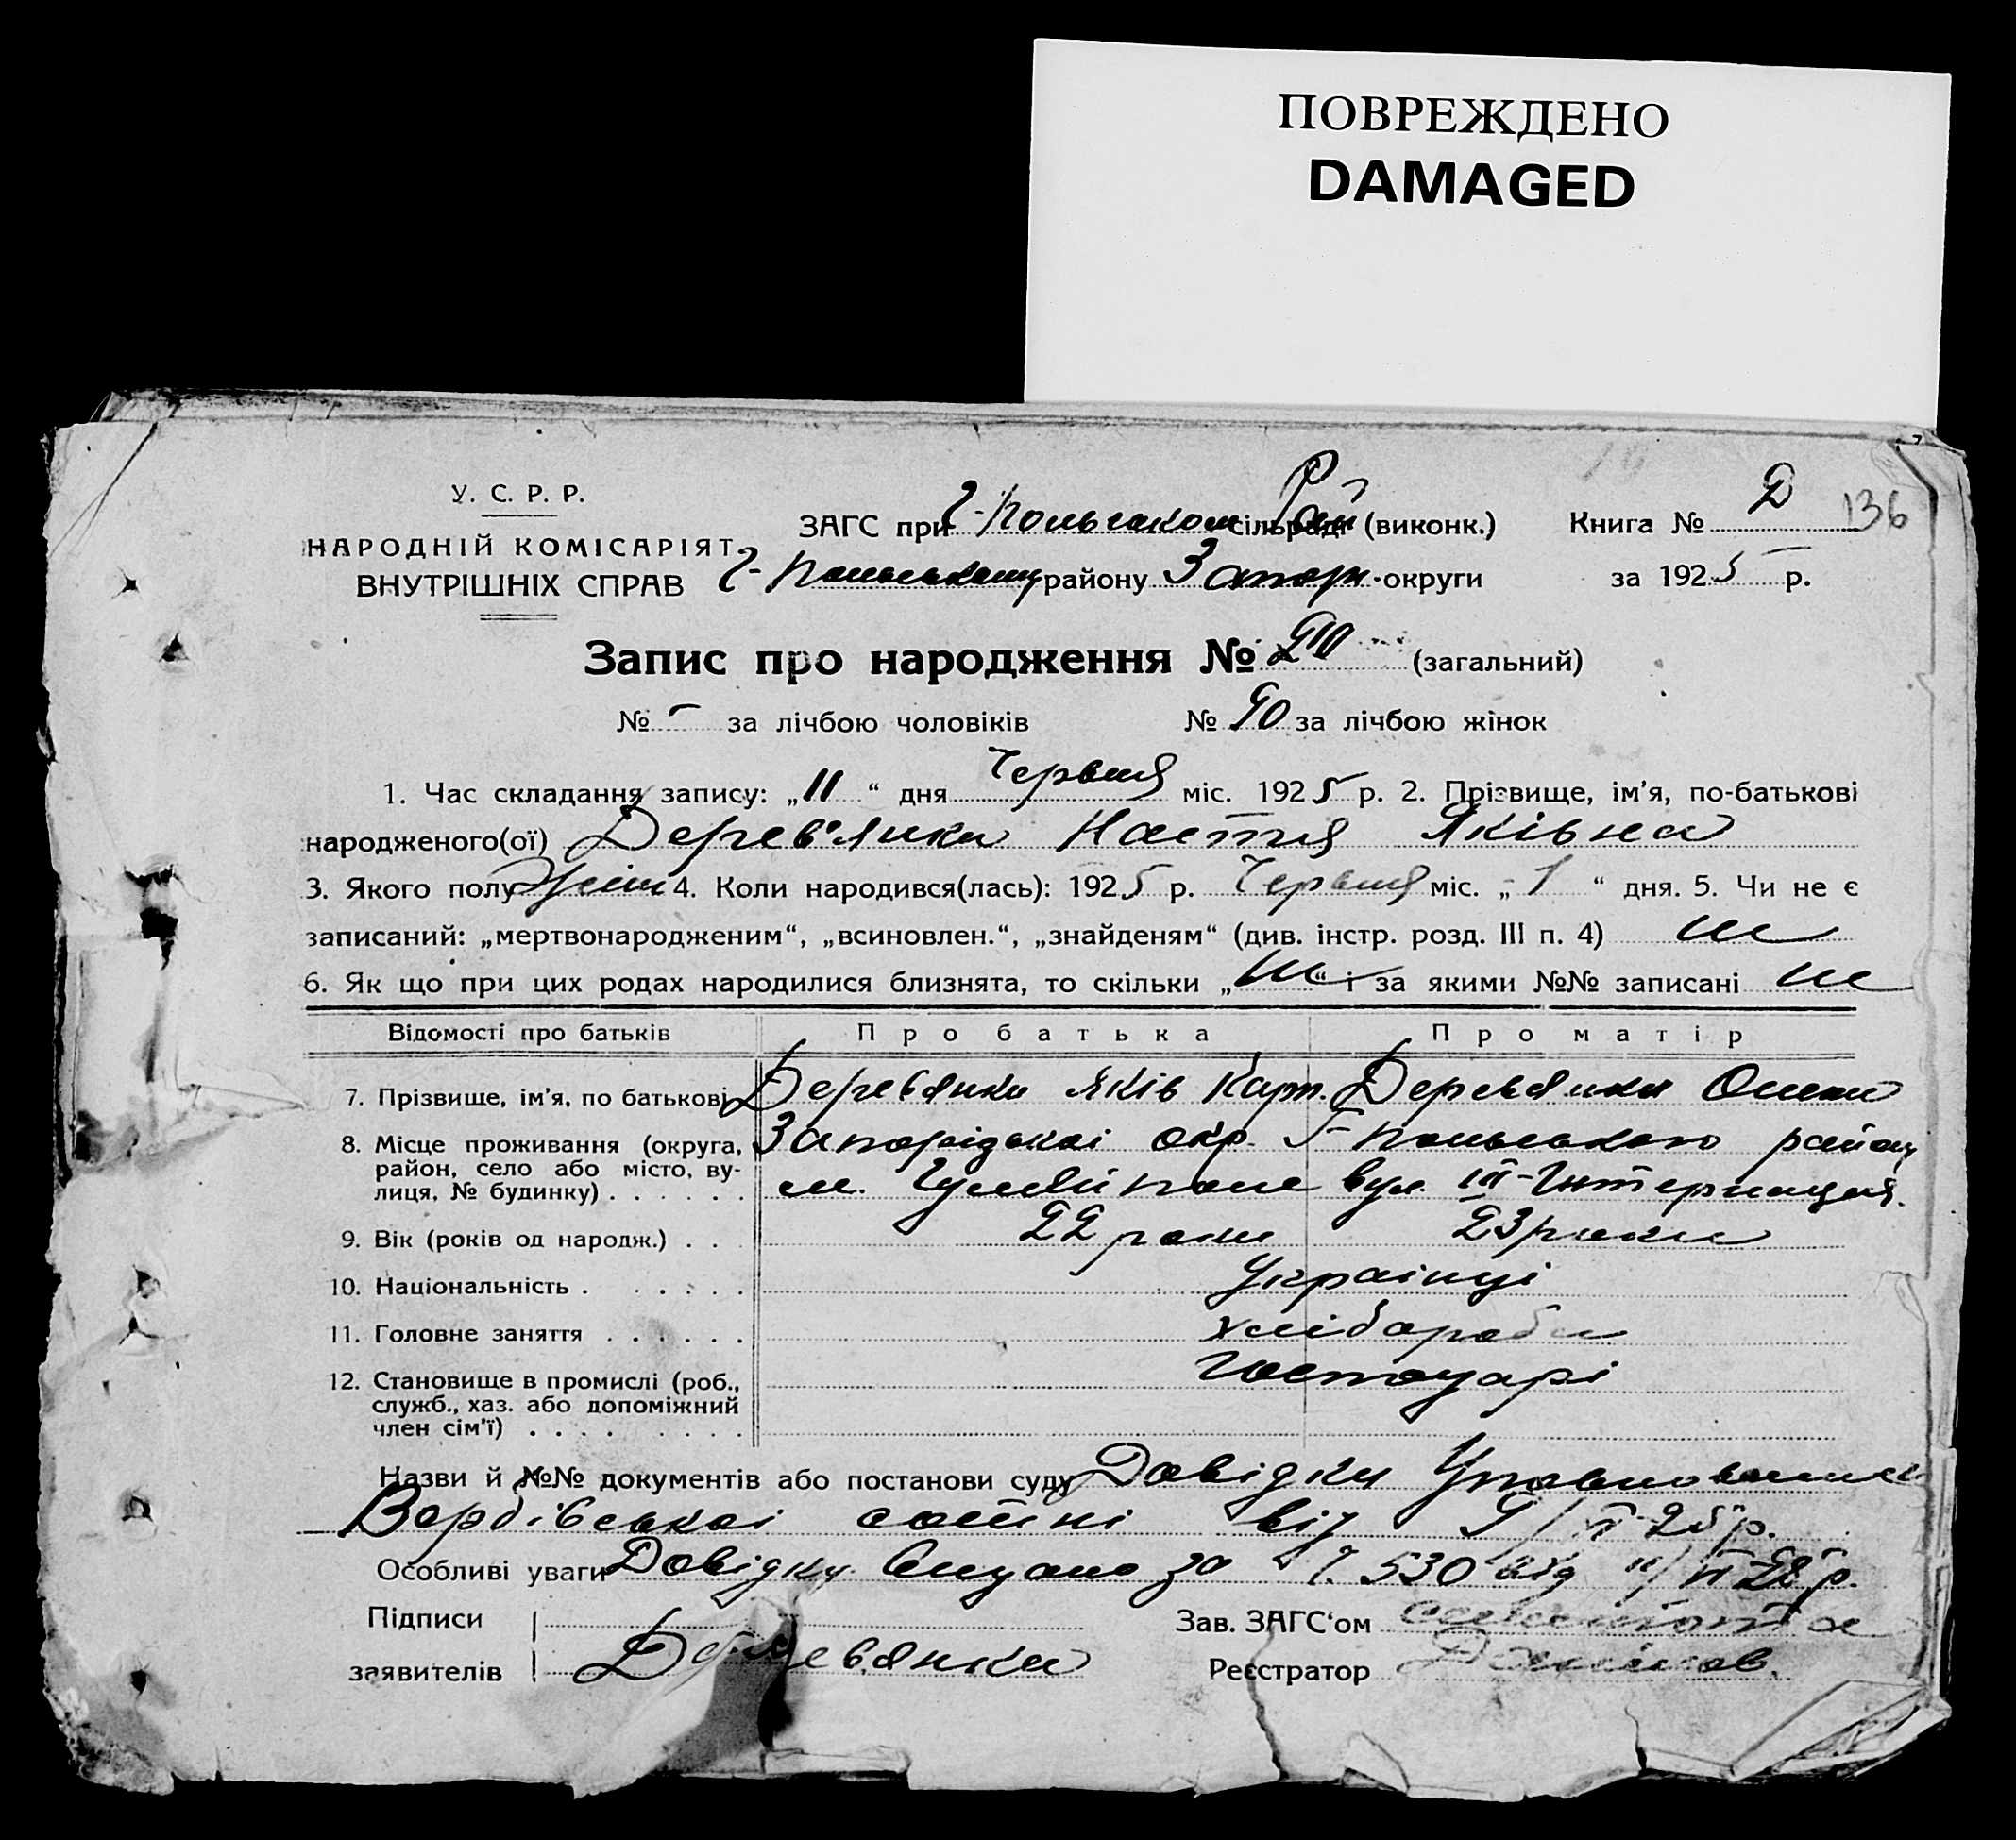 ПОВРЕЖДЕНО
DAMAGED
У. С. Р. Р.
НАРОДНІЙ КОМІСАРІЯТ
ВНУТРІШНІХ СПРАВ
ЗАГС при Г-Польском Рай сільраді (виконк.)
Книга № 2
136
Г-Польському району Запор. округи
за 1925 р.
Запис про народження № (загальний)
№ – за лічбою чоловіків № 90 за лічбою жінок
1. Час складання запису: „11“ дня Червня міс. 1925 р. 2. Прізвище, ім'я, по-батькові
народженого(ої) Дерев'янка Настя Яківна
3. Якого полу Жін 4. Коли народився(лась): 1925 р. Червня міс. „1“ дня. 5. Чи не є
записаний: „мертвонародженим“, „всиновлен.“, „знайденям“ (див. інстр. розд. III п. 4) ні
6. Як що при цих родах народилися близнята, то скільки „ні“ і за якими №№ записані ні
Відомості про батьків Про батька Про матір
7. Прізвище, ім'я, по батькові Деревянки Яків Карп. Деревянка
8. Місце проживання (округа, район, село або місто, вулиця, № будинку) Запорізької окр. Г-Польського району
м. Гуляйполе вул. III-Інтернаціон.
9. Вік (років од народж.) 22 роки 23 роки
10. Національність Українці
11. Головне заняття хлібороби
12. Становище в промислі (роб.,
служб., хаз. або допоміжний
член сім'ї) Господарі
Назви й №№ документів або постанови суду Довідки Уповноважен
Вербівської сотні від 9/VI-25 р.
Особливі уваги Довідку видано за Ч. 530 від 11/VI 28 р.
Підписи
заявителів Деревянки
Зав. ЗАГС'ом
Реєстратор